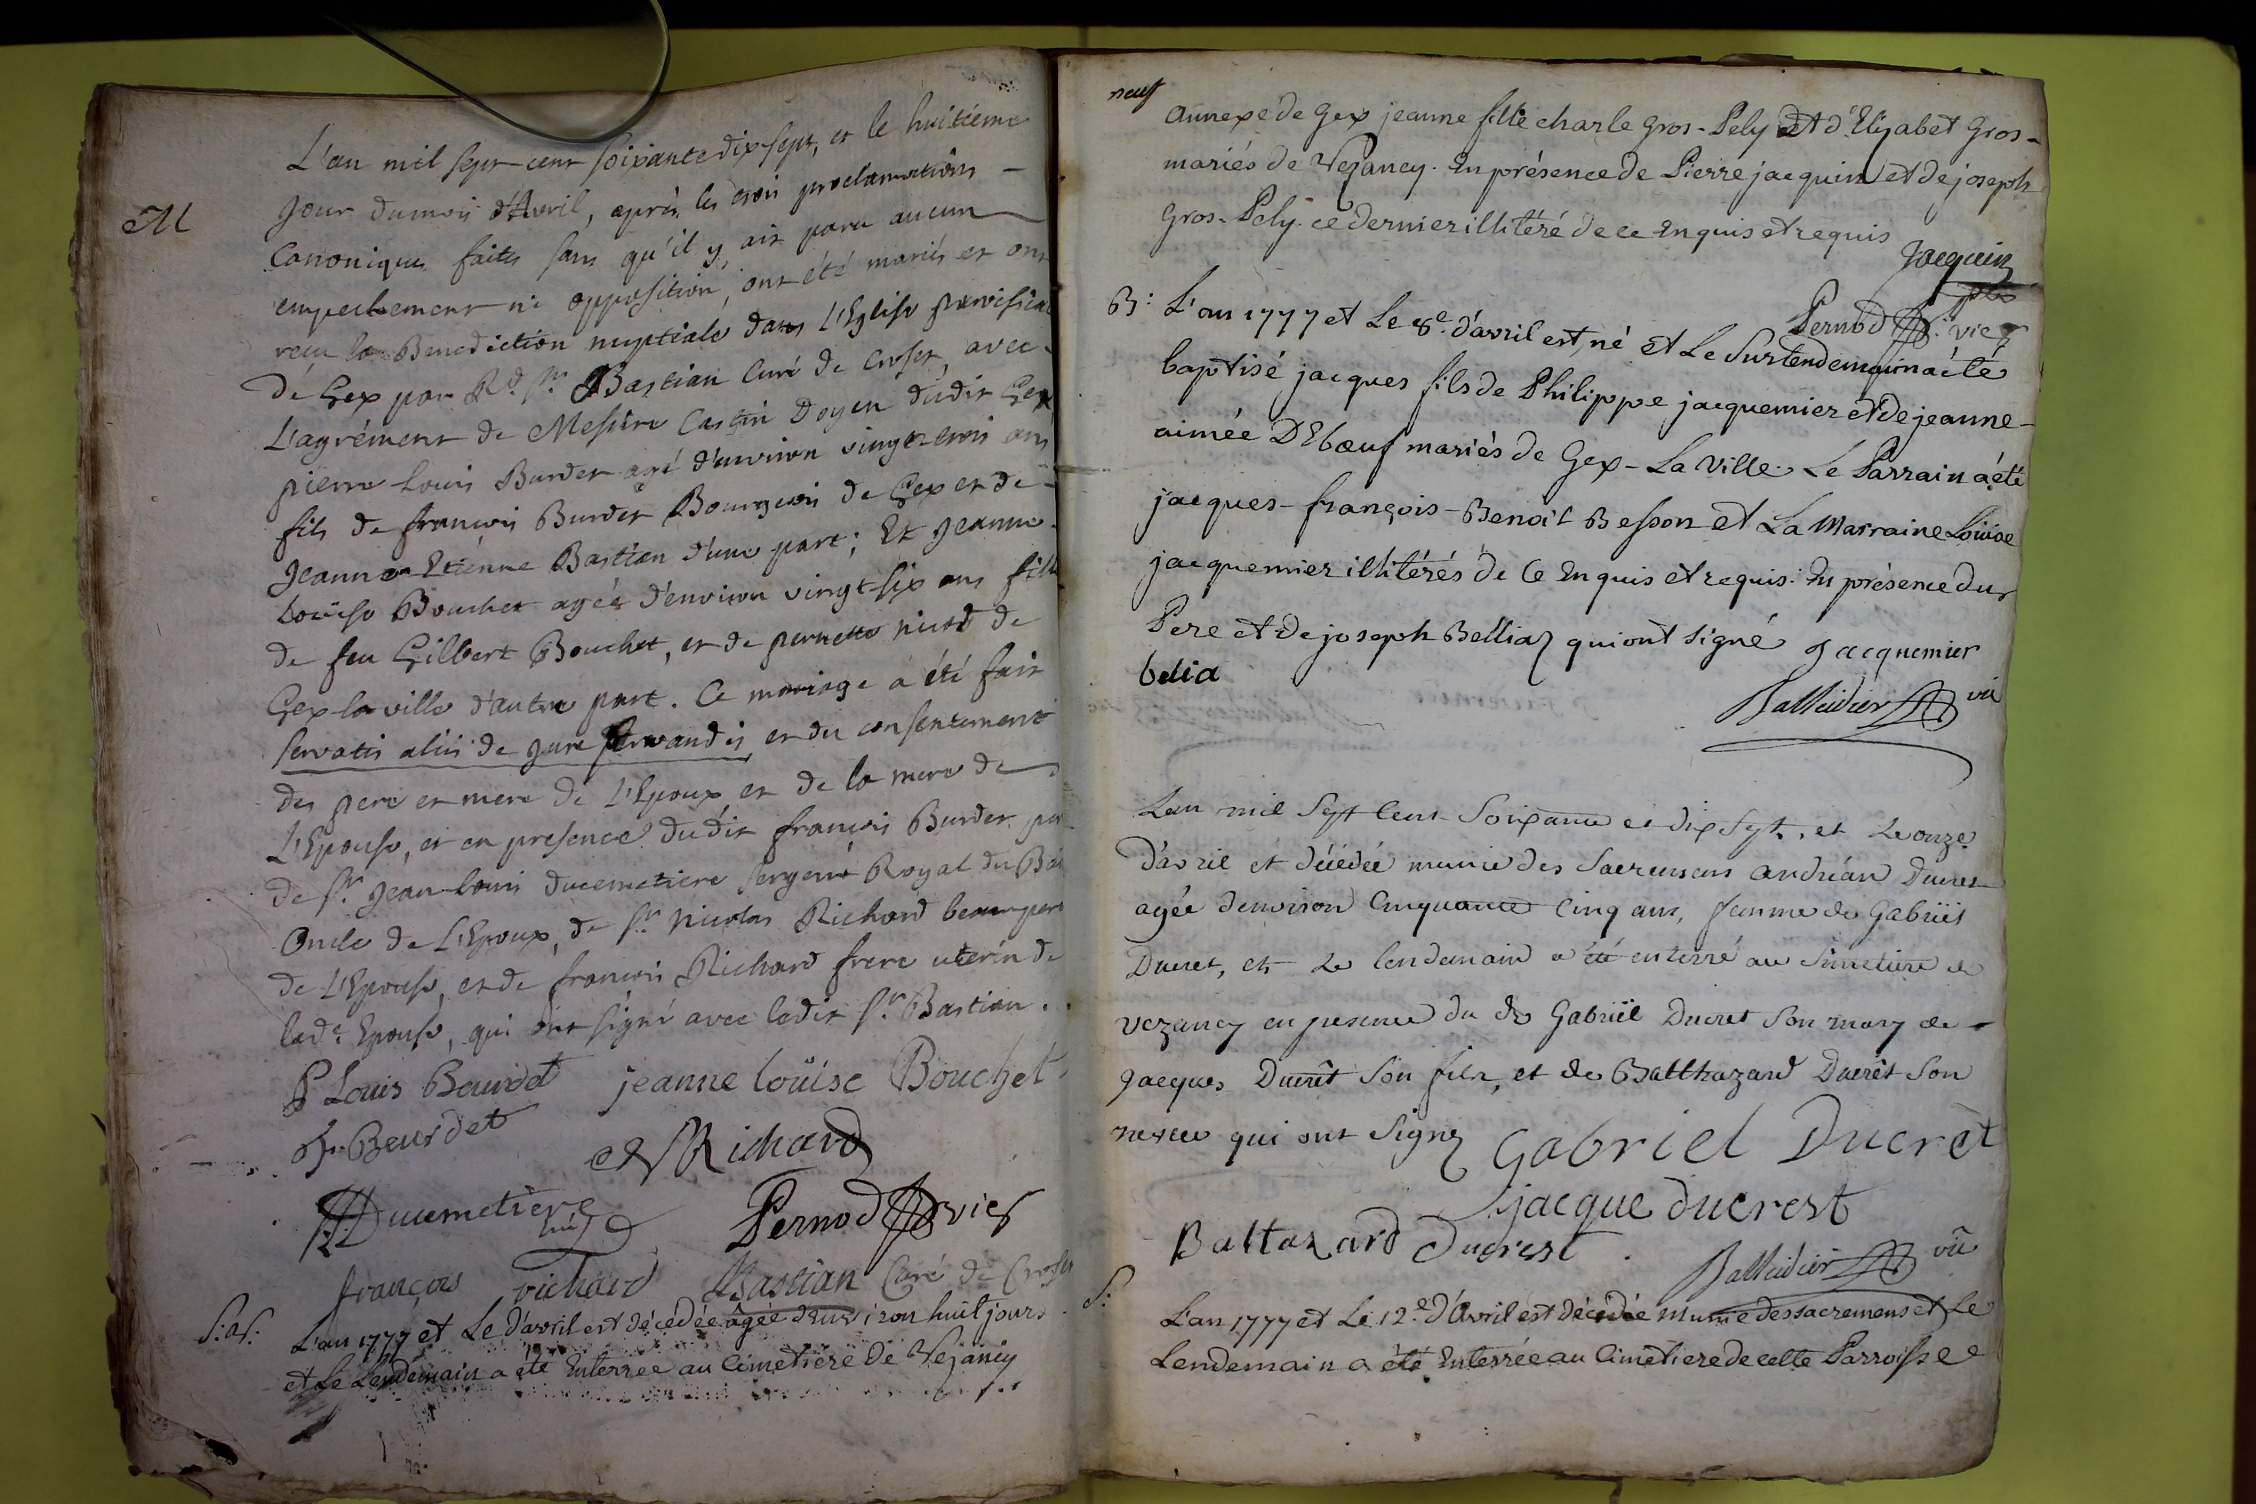 M
L'an mil sept-cent soixante dix-sept, et le huitieme
Jour du mois d'Avril, après les trois proclamations -
Canoniques faites sans qu'il y ait paru aucun
empechement ni opposition, ont été mariés et ont
recu la Benediction nuptiale dans L'Eglise paroissiale
de Gex par Rd. Sr. Bastian Curé de Croset, avec -
L'agrément de Messire Castin Doyen dudit Gex
pierre Louis Burdet agé d'environ vingt-trois ans
fils de françois Burdet Bourgeois de Gex et de -
Jeanne Etienne Bastian d'une part; Et Jeanne -
Louise Bouchet agée d'environ vingt-six ans fille
de feu Gilbert Bouchet, et de pernette nicod de
Gex la ville d'autre part. Ce mariage a été fait
servatis aliis de jure servandis, et du consentement
des pere et mere de L'Epoux et de la mere de
L'Epouse, et en presence dudit françois Burdet
de Sr. Jean-Louis ducemetiere sergent Royal du
Oncle de L'Epoux, de Sr. Nicolas Richard beaupere
de L'Epouse, et de françois Richard frere uterin de
lade. Epouse, qui ont signé avec ledit Sr. Bastian.
P Louis Beurdet jeanne loüise Bouchet
fr. Beurdet
Richard
Ducemetiere
Pernod vic
françois richard Bastian Curé de Croset
S:as: L'an 1777 et Le d'avril est décédée âgée d'environ huit jours
et Le Lendemain a été Enterrée au Cimetiere de Vesancy
neuf
annexe de Gex jeanne fille charle Gros-Pely Et d'Elizabet Gros-
mariés de Vesancy. En présence de Pierre jacquin et de joseph
Gros-Pely. ce dernier illitéré de ce Enquis et requis
jacquin
Pernod vic
B: L'an 1777 et Le 8e. d'avril est né Et Le Surlendemain a été
baptisé jacques fils de Philippe jacquemier et de jeanne-
aimée DEbœuf mariés de Gex-La Ville. Le Parrain a été
jacques-françois-Benoit Besson et La Marraine Louise
jacquemier illitérés de Ce Enquis et requis. En présence du
Pere et de joseph Belliaz qui ont signé Jacquemier
belia
Balleidier vic
L'an mil Sept Cent Soixante et dix Sept, et Le onze
d'avril et décédée munie des Sacremens andréan Ducret
agée d'environ Cinquante Cinq ans, femme de Gabriël
Ducret, et Le lendemain a été enterré au Simetiere de
Vezancy en presence du dt Gabriël Ducret Son mary de -
Jacques Ducrêt Son fils, et de Balthazard Ducrêt Son
neveu qui ont Signez Gabriel Ducrèt
jacque ducrest
Baltazard Ducrest
Balleidier vic
S: L'an 1777 et Le 12e. d'Avril est décédée munie des sacremens et Le
Lendemain a été Enterrée au Cimetiere de cette Parroisse